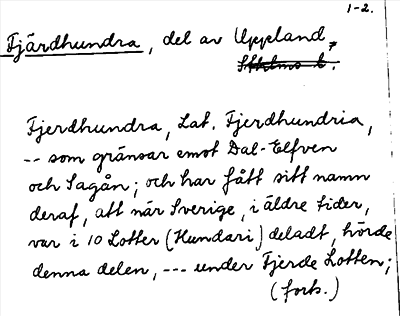 1-2.
Fjärdhundra, del av Uppland,
Sthlms l.
Fjerdhundra, Lat. Fjerdhundria,
-- som gränsar emot Dal-Elfven
och Sagån; och har fått sitt namn
deraf, att när Sverige, i äldre tider,
var i 10 Lotter (Hundari) deladt, hörde
denna delen, --- under Fjerde Lotten;
(forts.)